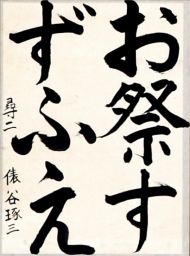 お祭す
ずふえ
尋二 俵谷琢三